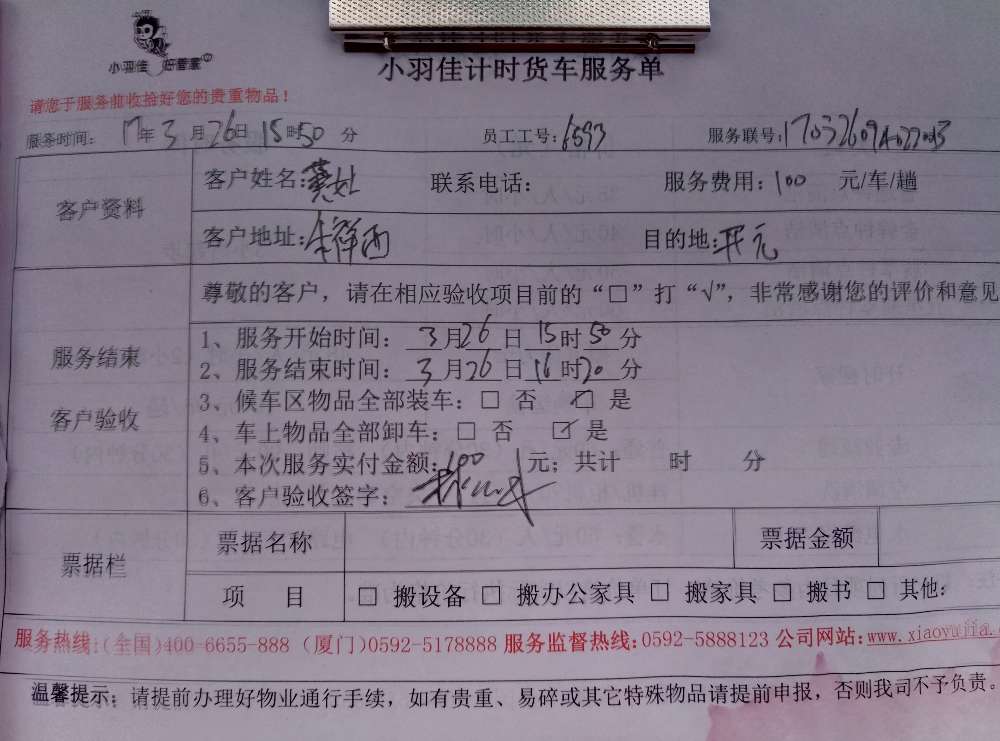 小羽佳 好管家
小羽佳计时货车服务单
请您于服务前收拾好您的贵重物品！
服务时间： 17年3月26日15时50分 员工工号：6593 服务联号：
客户资料
客户姓名： 联系电话： 服务费用：100 元/车/趟
客户地址： 祥西 目的地：开元
尊敬的客户，请在相应验收项目前的“□”打“√”，非常感谢您的评价和意见
服务结束
客户验收
1、服务开始时间：3月26日15时50分
2、服务结束时间：3月26日16时20分
3、候车区物品全部装车：□ 否 ☑ 是
4、车上物品全部卸车：□ 否 ☑ 是
5、本次服务实付金额：100 元；共计 时 分
6、客户验收签字：
票据栏
票据名称 票据金额
项 目 □ 搬设备 □ 搬办公家具 □ 搬家具 □ 搬书 □ 其他：
服务热线：(全国)400-6655-888 (厦门)0592-5178888 服务监督热线：0592-5888123 公司网站：www.xiaoyujia.
温馨提示：请提前办理好物业通行手续，如有贵重、易碎或其它特殊物品请提前申报，否则我司不予负责。